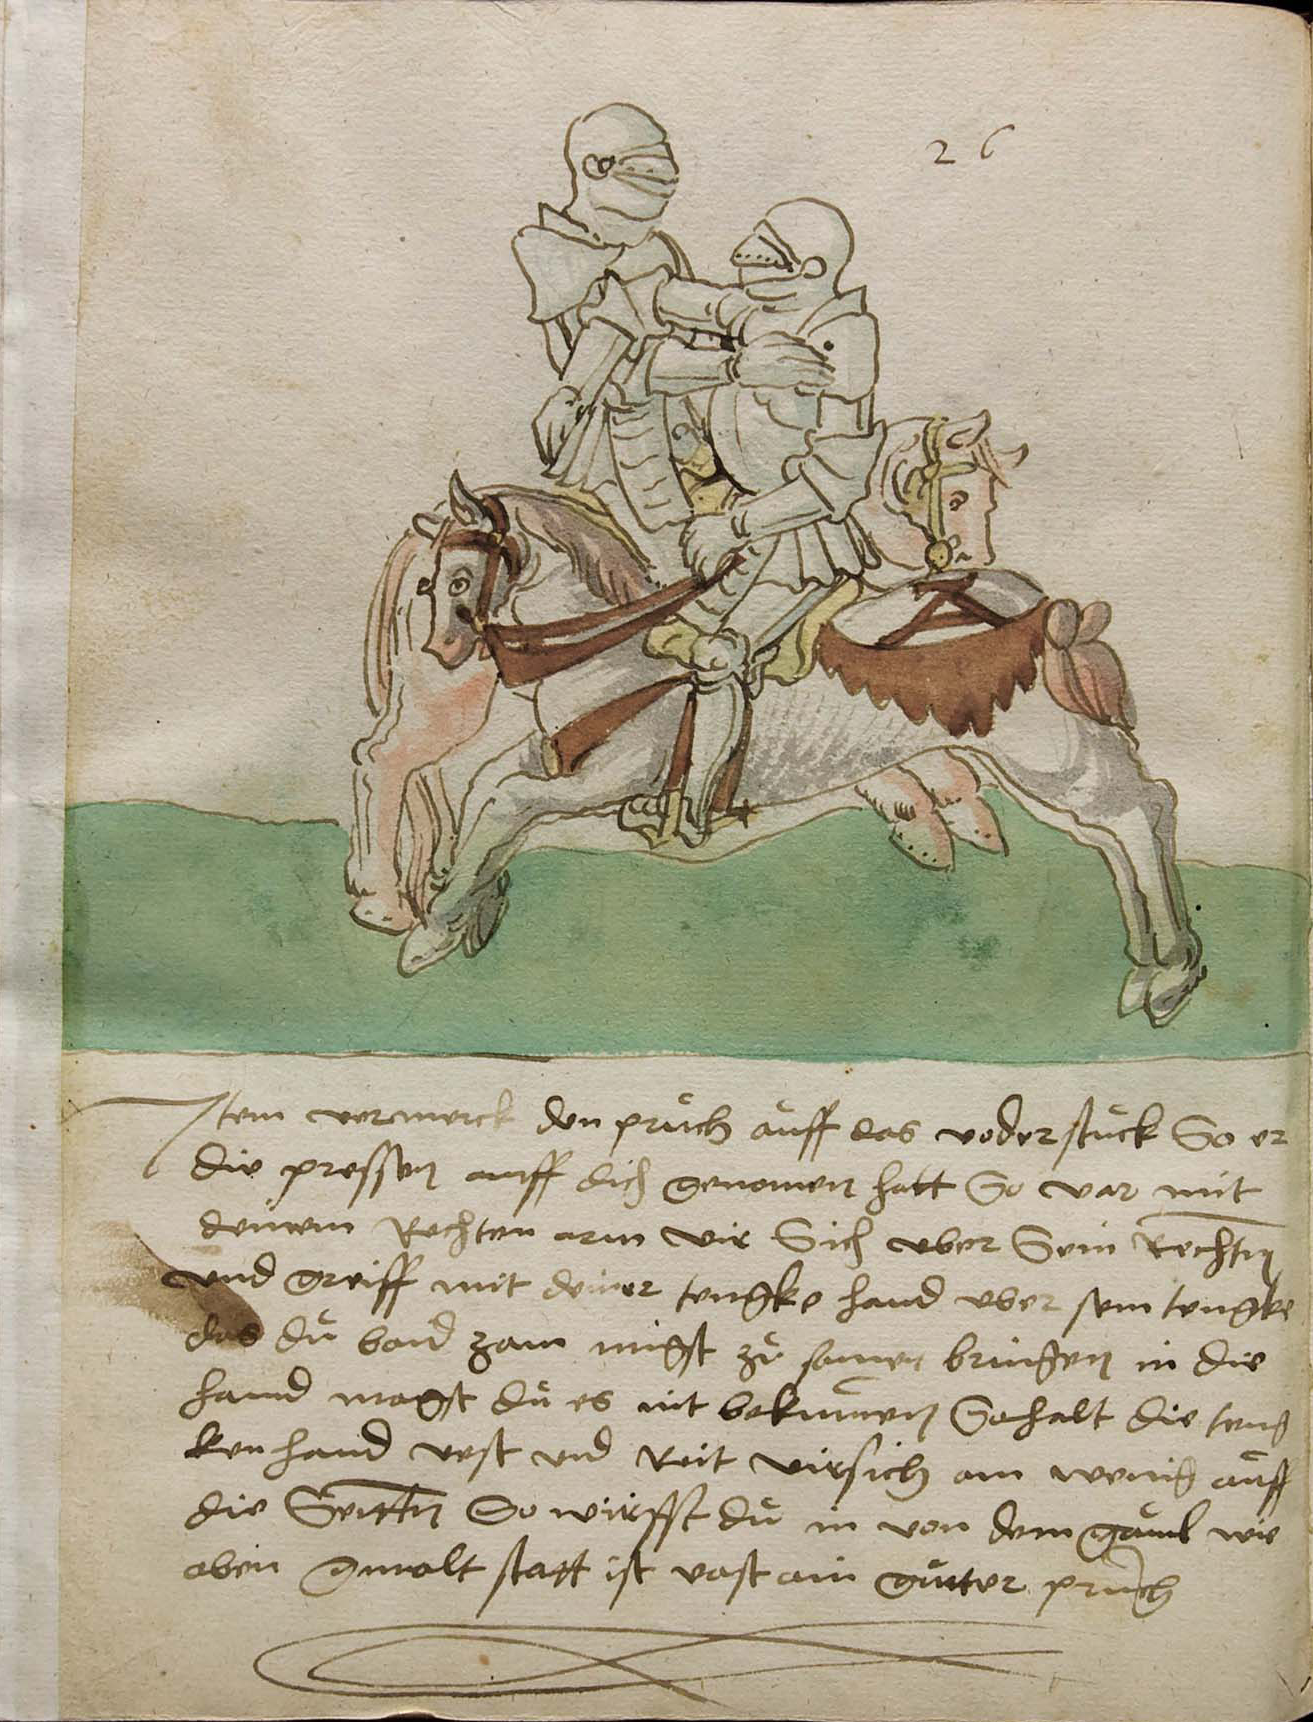 26
Item vermerck den pruͤch aůff das voder stuͤck So er
die pressen auff dich genomen hatt So var mit
deinem Rechten arm vir Sich vber Sein Rechtn̄
vnd greiff mit deiner tengke hand vber sein tengke
das dů baid zam mӱgst zů samen bringen in die
hannd magst dů es nit bekumen So halt die teng
ken hand vest vnd Reit virsich am wenig aůff
die Seittn̄ So wirffst dů in von dem gaůl wie
oben gmalt statt ist vast ain gůtter průch